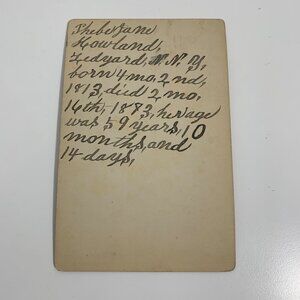 Phebe Jane
Howland,
Ledyard, N.Y.
born 4 mo. 2 nd,
1813, died 2 mo.
16th, 1873, her age
was 59 years, 10
months, and
14 days,